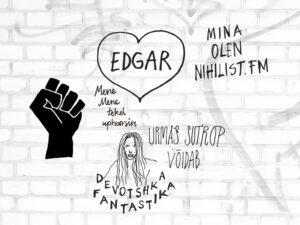 EDGAR
MINA
OLEN
NIHILIST.FM
Mene
Mene
tekel
upharsin
URMAS SUTROP
VÕIDAB
DEVOTSHKA
FANTASTIKA